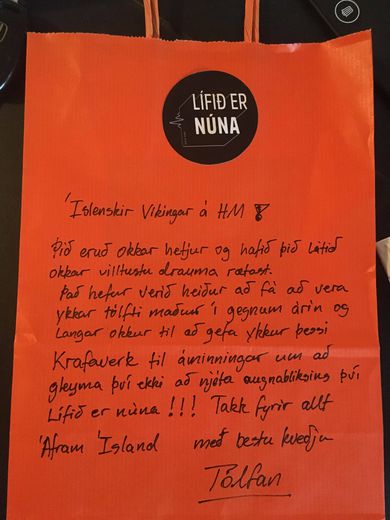 LÍFIÐ ER
NÚNA
Íslenskir Víkingar á HM
Þið eruð okkar hetjur og hafið þið látið
okkar villtustu drauma rætast.
Það hefur verið heiður að fá að vera
ykkar tólfti maður í gegnum árin og
langar okkur til að gefa ykkur þessi
Krafawerk til áminningar um að
gleyma því ekki að njóta augnabliksins því
Lífið er núna !!! Takk fyrir allt
Áfram Ísland með bestu kveðju
Tólfan